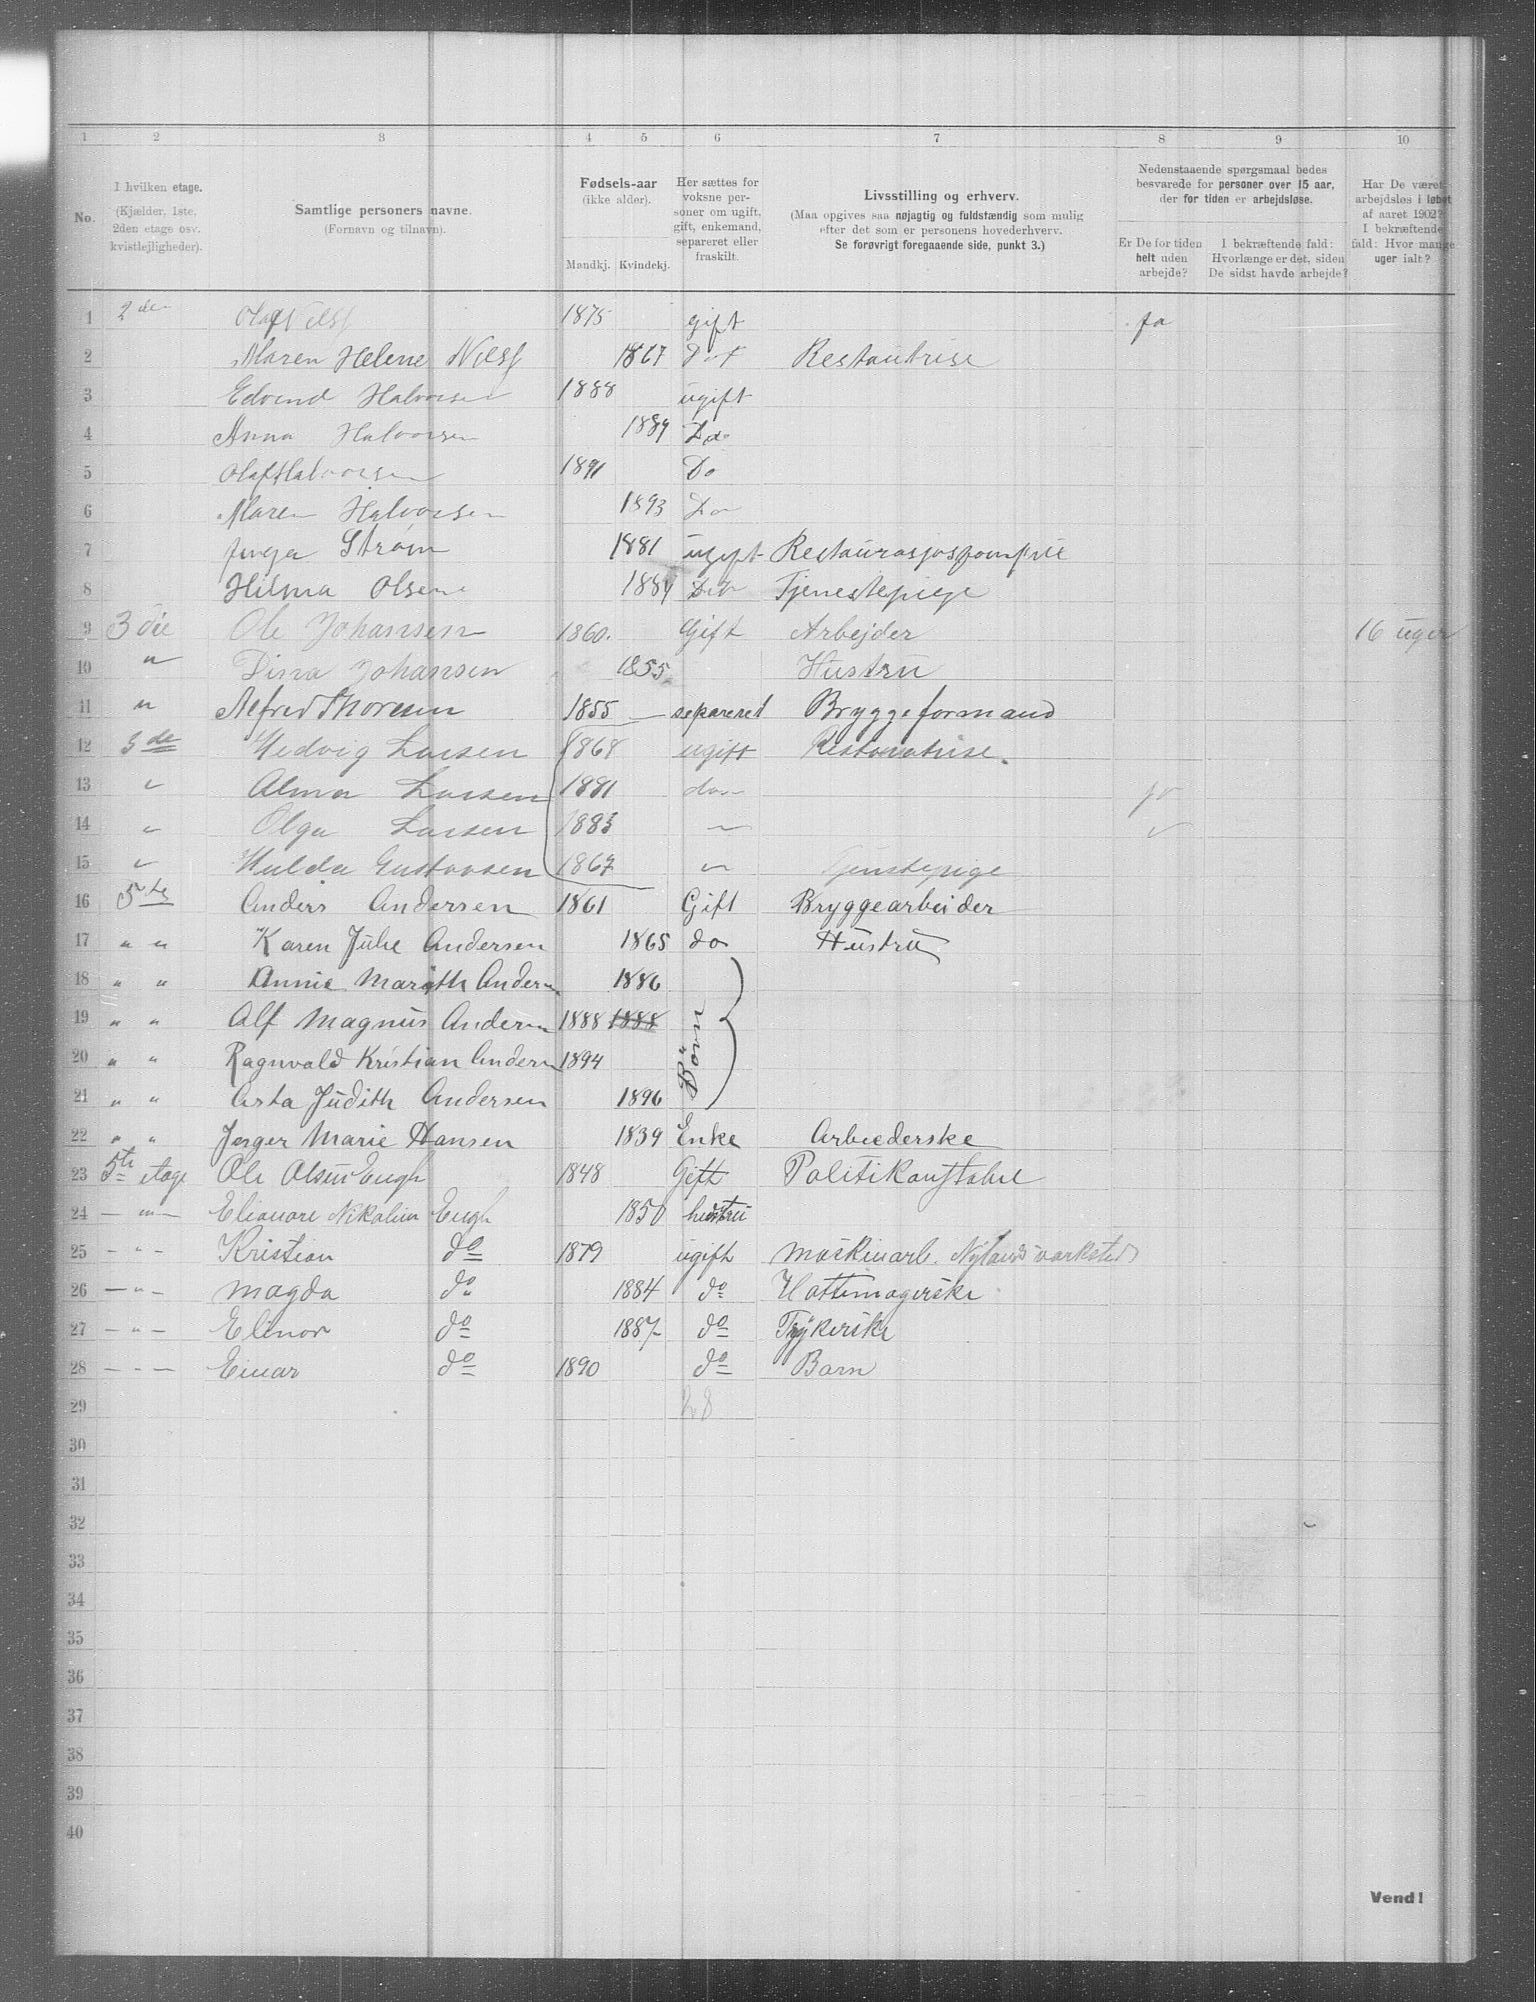 1 2 3 4 5 6 7 8 9 10
No.
I hvilken etage.
(Kjælder, 1ste,
2den etage osv.
kvistlejligheder).
Samtlige personers navne.
(Fornavn og tilnavn).
Fødsels-aar
(ikke alder).
Mandkj. Kvindekj.
Her sættes for
voksne per-
soner om ugift,
gift, enkemand,
separeret eller
fraskilt.
Livsstilling og erhverv.
(Maa opgives saa nøjagtig og fuldstændig som mulig
efter det som er personens hovederhverv.
Se forøvrigt foregaaende side, punkt 3.)
Nedenstaaende spørgsmaal bedes
besvarede for personer over 15 aar,
der for tiden er arbejdsløse.
Er De for tiden
helt uden
arbejde?
I bekræftende fald:
Hvorlænge er det, siden
De sidst havde arbejde?
Har De været
arbejdsløs i løbet
af aaret 1902?
I bekræftende
fald: Hvor mange
uger ialt?
1 2den Olaf Nilsf 1875 gift ja
2 Maren Helene Nilsf 1867 Restautrise
3 Edvind Halvorsen 1888 ugift
4 Anna Halvorsen 1889 Do
5 Olaf Halvorsen 1891 Do
6 Maren Halvorsen 1893 Do
7 Strøm 1881 ugift
8 Hilma Olsen 1884 Do Tjenestepige
9 3die Ole Johansen 1860. Gift Arbejder 16 uger
10 " Dina Johansen 1855 Hustru
11 " Alfred Thoresen 1855 separeret Bryggeformand
12 3de Hedvig Larsen 1868 ugift Restoratrise.
13 " Alma Larsen 1881 do ja
14 " Olga Larsen 1883 " "
15 " Hulda Gustavsen 1867 " Tjenstepige
16 5te Anders Andersen 1861 Gift Bryggearbeider
17 " " Karen Julie Andersen 1865 do Hustru
18 " " Annie Marith Andersn 1886
19 " " Alf Magnus Andersn 1888 1888
20 " " Ragnvald Kristian Andersn 1894
Börn
21 " " Asta Judith Andersen 1896
22 " " Jnger Marie Hansen 1839 Enke Arbiederske
23 5te etage Ole Olsen Engh 1848 Gift Politikonstabel
24 — " — Eleonore Nikoline Engh 1850 hustru
25 - " - Kristian do 1879 ugift maskinarb. Nylands værksted
26 — " — Magda do 1884 do Hattemagerske
27 — " — Elinor do 1887 do Trykerske
28 — - — Einar do 1890 do Barn
29 28
30
31
32
33
34
35
36
37
38
39
40
Vend!